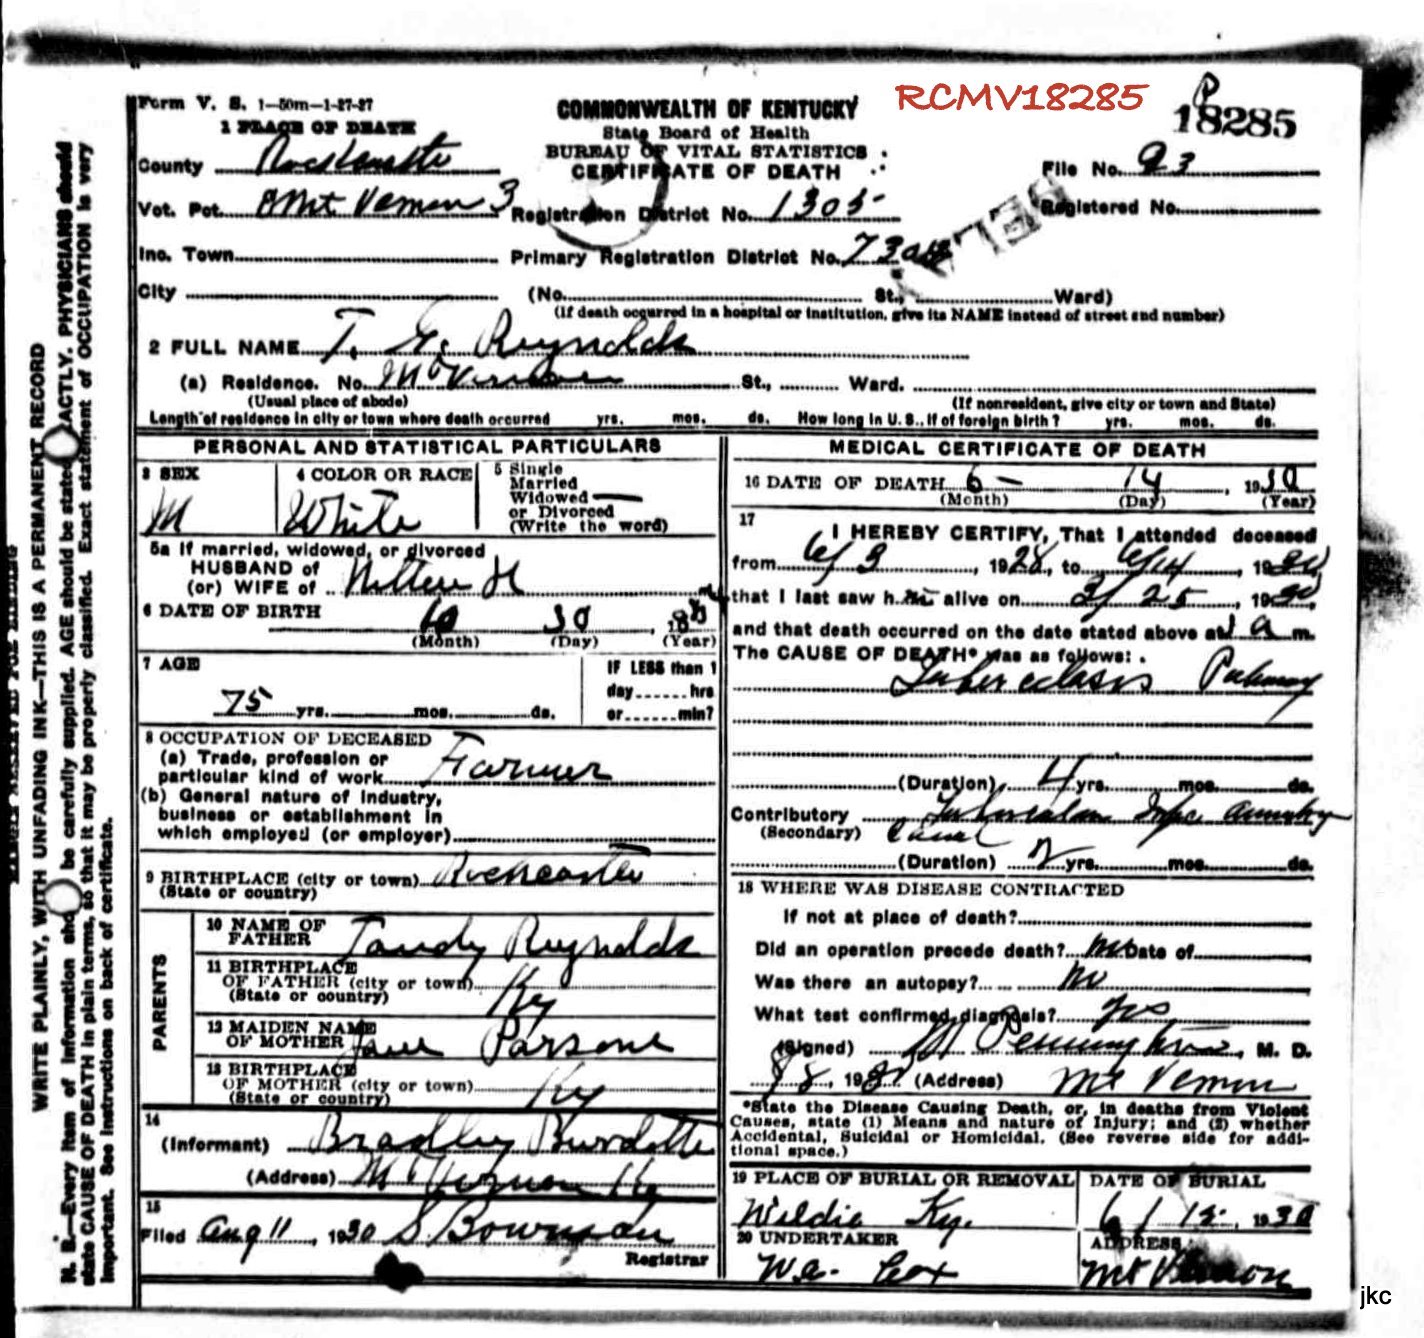 Form V. S. 1-50m-1-27-27
1 PLACE OF DEATH
COMMONWEALTH OF KENTUCKY
State Board of Health
BUREAU OF VITAL STATISTICS
CERTIFICATE OF DEATH
RCMV18285
18285
County
File No. 93
Vot. Pct. Mt Vernon 3
Registration District No. 1305
Registered No.
Inc. Town
Primary Registration District No.
City (No. St., Ward)
(If death occurred in a hospital or institution, give its NAME instead of street and number)
2 FULL NAME T. Reynolds
(a) Residence. No. Mt Vernon St., Ward.
(Usual place of abode) (If nonresident, give city or town and State)
Length of residence in city or town where death occurred yrs. mos. ds. How long in U. S., if of foreign birth? yrs. mos. ds.
PERSONAL AND STATISTICAL PARTICULARS
3 SEX
M
4 COLOR OR RACE
White
5 Single
Married
Widowed
or Divorced
(Write the word)
5a If married, widowed, or divorced
HUSBAND of
(or) WIFE of
6 DATE OF BIRTH
(Month) (Day) (Year)
7 AGE
75 yrs. mos. ds.
IF LESS than 1
day hrs
or min?
8 OCCUPATION OF DECEASED
(a) Trade, profession or
particular kind of work Farmer
(b) General nature of industry,
business or establishment in
which employed (or employer)
9 BIRTHPLACE (city or town) Rockcastle
(State or country)
PARENTS
10 NAME OF
FATHER Tandy Reynolds
11 BIRTHPLACE
OF FATHER (city or town) Ky
(State or country)
12 MAIDEN NAME
OF MOTHER Jane Parsons
13 BIRTHPLACE
OF MOTHER (city or town) Ky
(State or country)
14
(Informant) Bradley Burdette
(Address) Mt Vernon Ky
15
Filed Aug 11, 1930 S Bowman
Registrar
MEDICAL CERTIFICATE OF DEATH
16 DATE OF DEATH 6 - 14, 1930
(Month) (Day) (Year)
17
I HEREBY CERTIFY, That I attended deceased
from 6/3, 1928, to 6/14, 1930,
that I last saw him alive on 3/25, 1930,
and that death occurred on the date stated above at 1 a m.
The CAUSE OF DEATH* was as follows:
Tuberculosis Pulmonary
(Duration) 4 yrs. mos. ds.
Contributory
(Secondary) Canal
(Duration) 2 yrs. mos. ds.
18 WHERE WAS DISEASE CONTRACTED
If not at place of death?
Did an operation precede death? no Date of
Was there an autopsy? no
What test confirmed diagnosis? yes
(Signed) M Pennington, M. D.
8/8, 1930 (Address) Mt Vernon
*State the Disease Causing Death, or, in deaths from Violent
Causes, state (1) Means and nature of Injury; and (2) whether
Accidental, Suicidal or Homicidal. (See reverse side for addi-
tional space.)
19 PLACE OF BURIAL OR REMOVAL
Wildie Ky.
DATE OF BURIAL
6/15, 1930
20 UNDERTAKER
W.A. Cox
ADDRESS
Mt Vernon
MARGIN RESERVED FOR BINDING
WRITE PLAINLY, WITH UNFADING INK—THIS IS A PERMANENT RECORD
N. B.—Every item of information should be carefully supplied. AGE should be stated EXACTLY. PHYSICIANS should
state CAUSE OF DEATH in plain terms, so that it may be properly classified. Exact statement of OCCUPATION is very
important. See instructions on back of certificate.
jkc